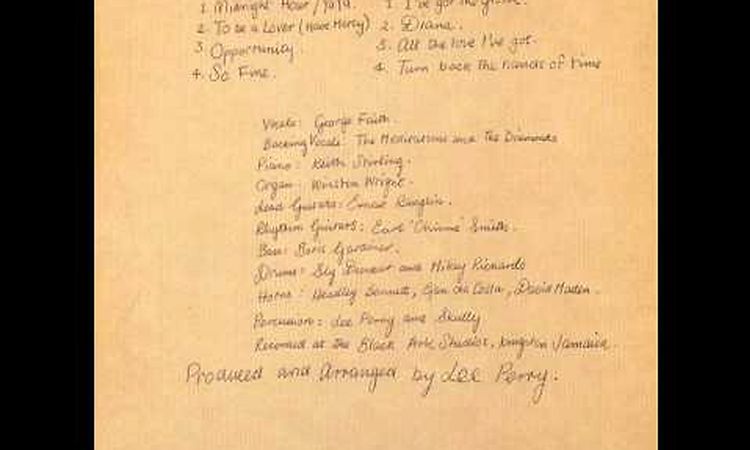 1. Midnight Hour / Ya Ya. 1. I've got the groove.
2. To be a Lover (Have Mercy) 2. Diana.
3 Opportunity. 3. All the love I've got.
4. So Fine. 4. Turn back the hands of time
Vocals: George Faith.
Backing Vocals: The Meditations and the Diamonds
Piano: Keith Sterling.
Organ: Winston Wright.
Lead Guitars: Ernest Ranglin.
Rhythm Guitars: Earl 'Chinna' Smith.
Bass: Boris Gardiner.
Drums: Sly Dunbar and Mikey Richards
Horns: Headley Bennett, Glen da Costa, David Madden.
Percussion: Lee Perry and Skully
Recorded at the Black Ark Studios, Kingston Jamaica.
Produced and Arranged by Lee Perry.